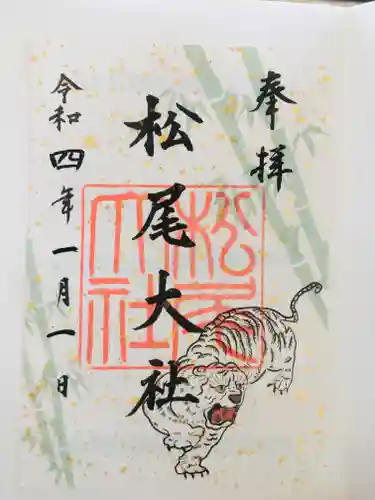 奉拝
松尾大社
令和四年一月一日
松尾大社